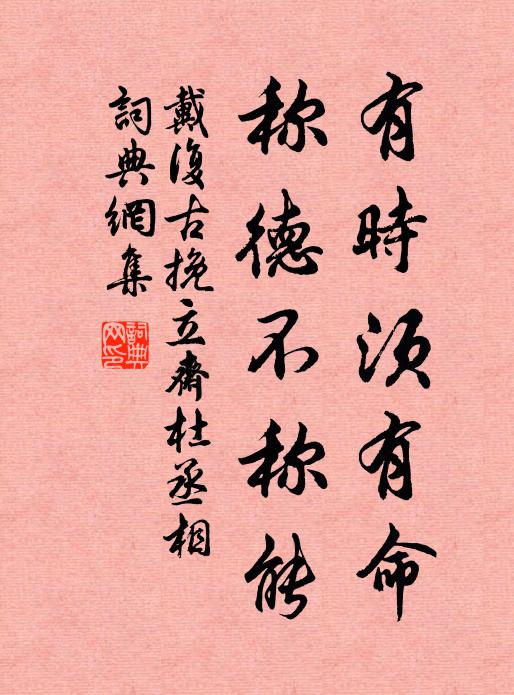 有時須有命
称德不称能
戴復古挽立齋杜丞相
詞典網集
詞典网印